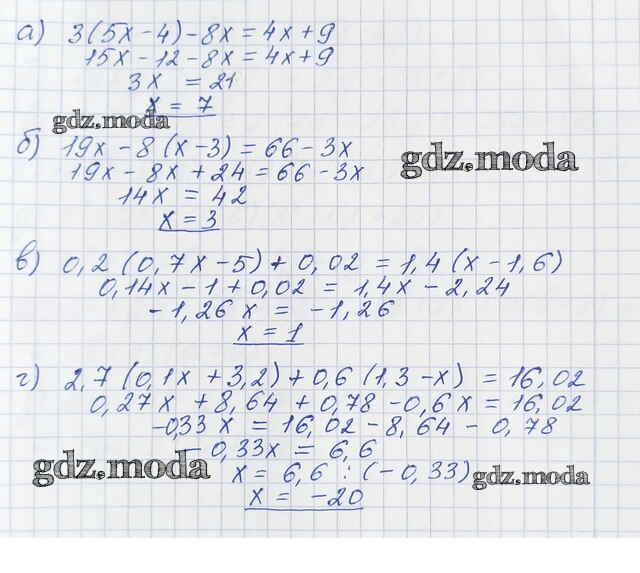 а) 3(5x - 4) - 8x = 4x + 9
15x - 12 - 8x = 4x + 9
3x = 21
x = 7
gdz.moda
б) 19x - 8 (x - 3) = 66 - 3x
gdz.moda
19x - 8x + 24 = 66 - 3x
14x = 42
x = 3
в) 0,2 (0,7x - 5) + 0,02 = 1,4 (x - 1,6)
0,14x - 1 + 0,02 = 1,4x - 2,24
- 1,26 x = - 1,26
x = 1
г) 2,7 (0,1x + 3,2) + 0,6 (1,3 - x) = 16,02
0,27x + 8,64 + 0,78 - 0,6x = 16,02
-0,33x = 16,02 - 8,64 - 0,78
- 0,33x = 6,6
gdz.moda
x = 6,6 : (- 0,33)
gdz.moda
x = - 20